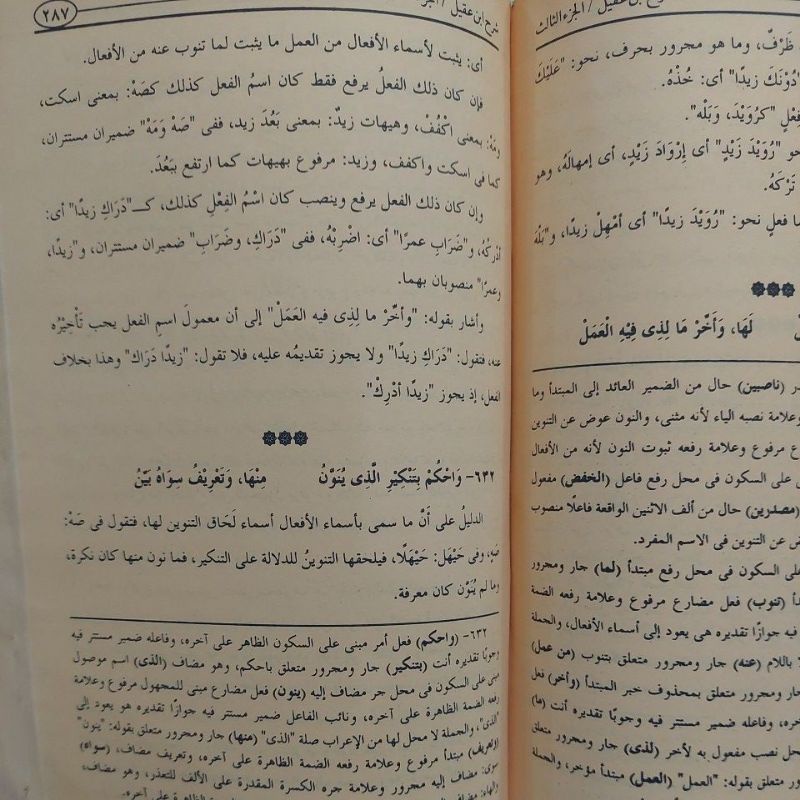 رح ابن عقيل / الجزء الثالث
ظَرْفٌ، وما هو مجرور بحرف، نحو: "عَلَيْكَ
"دُوْنَكَ زيدًا" أى: خُذْهُ.
فعْلٍ "كَرُوَيْدَ، وَبَلْه".
"رُوَيْدَ زَيْدٍ" أى إرْوَادَ زَيْدٍ، أى إمهالَهُ، وهو
تَرْكَهُ.
فعلٍ نحو: "رُوَيْدَ زيدًا" أى أمْهِلْ زيدًا، و"بَلْهَ
لَهَا، وَأخِّرْ مَا لِذِى فِيْهِ الْعَمَلْ
(ناصبين) حال من الضمير العائد إلى المبتدأ وما
وعلامة نصبه الياء لأنه مثنى، والنون عوض عن التنوين
مرفوع وعلامة رفعه ثبوت النون لأنه من الأفعال
على السكون فى محل رفع فاعل (الخفض) مفعول
(مصدرين) حال من ألف الاثنين الواقعة فاعلًا منصوب
عن التنوين فى الاسم المفرد.
على السكون فى محل رفع مبتدأ (لما) جار ومجرور
(تنوب) فعل مضارع مرفوع وعلامة رفعه الضمة
فيه جوازًا تقديره هى يعود إلى أسماء الأفعال، والجملة
باللام (عنه) جار ومجرور متعلق بتنوب (من عمل)
جار ومجرور متعلق بمحذوف خبر المبتدأ (وأخر) فعل
آخره، وفاعله ضمير مستتر فيه وجوبًا تقديره أنت (ما)
محل نصب مفعول به لأخر (لذى) جار ومجرور متعلق
متعلق بقوله: "العمل" (العمل) مبتدأ مؤخر، والجملة
شرح ابن عقيل / الجز
٢٨٧
أى: يثبت لأسماء الأفعال من العمل ما يثبت لما تنوب عنه من الأفعال.
فإن كان ذلك الفعلُ يرفع فقط كان اسمُ الفعل كذلك كصَهْ: بمعنى اسكت،
ومَهْ: بمعنى اكْفُفْ، وهيهات زيدٌ: بمعنى بَعُدَ زيد، ففى "صَهْ وَمَهْ" ضميران مستتران،
كما فى اسكت واكفف، وزيد: مرفوع بهيهات كما ارتفع ببَعُدَ.
وإن كان ذلك الفعل يرفع وينصب كان اسْمُ الفِعْلِ كذلك، كـ"دَرَاكِ زيدًا" أى:
أدْرِكْهُ، و"ضَرَابِ عمرًا" أى: اضْرِبْهُ، ففى "دَرَاكِ، وضَرَابِ" ضميران مستتران، و"زيدًا،
وعمرًا" منصوبان بهما.
وأشار بقوله: "وأخِّرْ ما لِذِى فيه العَمَلْ" إلى أن معمولَ اسمِ الفعل يجب تَأْخِيْرُه
عنه، فتقول: "دَرَاكِ زيدًا" ولا يجوز تقديمُه عليه، فلا تقول: "زيدًا دَرَاك" وهذا بخلاف
الفعل، إذ يجوز "زيدًا أدْرِكْ".
٦٣٢- وَاحْكُمْ بِتَنْكِيْرِ الَّذِى يُنَوَّنُ مِنْهَا، وَتَعْرِيْفُ سِوَاهُ بَيِّنُ
الدليلُ على أَنَّ ما سمى بأسماء الأفعال أسماء لَحَاق التنوين لها، فتقول فى صَهْ:
صَهٍ، وفى حَيْهَل: حَيْهَلًا، فيلحقها التنوينُ للدلالة على التنكير، فما نون منها كان نكرة،
وما لم يُنَوَّن كان معرفة.
٦٣٢- (واحكم) فعل أمر مبنى على السكون الظاهر على آخره، وفاعله ضمير مستتر فيه
وجوبًا تقديره أنت (بتنكير) جار ومجرور متعلق باحكم، وهو مضاف (الذى) اسم موصول
مبنى على السكون فى محل جر مضاف إليه (ينون) فعل مضارع مبنى للمجهول مرفوع وعلامة
رفعه الضمة الظاهرة على آخره، ونائب الفاعل ضمير مستتر فيه جوازًا تقديره هو يعود إلى
"الذى"، والجملة لا محل لها من الإعراب صلة "الذى" (منها) جار ومجرور متعلق بقوله: "ينون"
(وتعريف) مبتدأ مرفوع وعلامة رفعه الضمة الظاهرة على آخره، وتعريف مضاف، (سواه)
سوى: مضاف إليه مجرور وعلامة جره الكسرة المقدرة على الألف للتعذر، وهو مضاف،